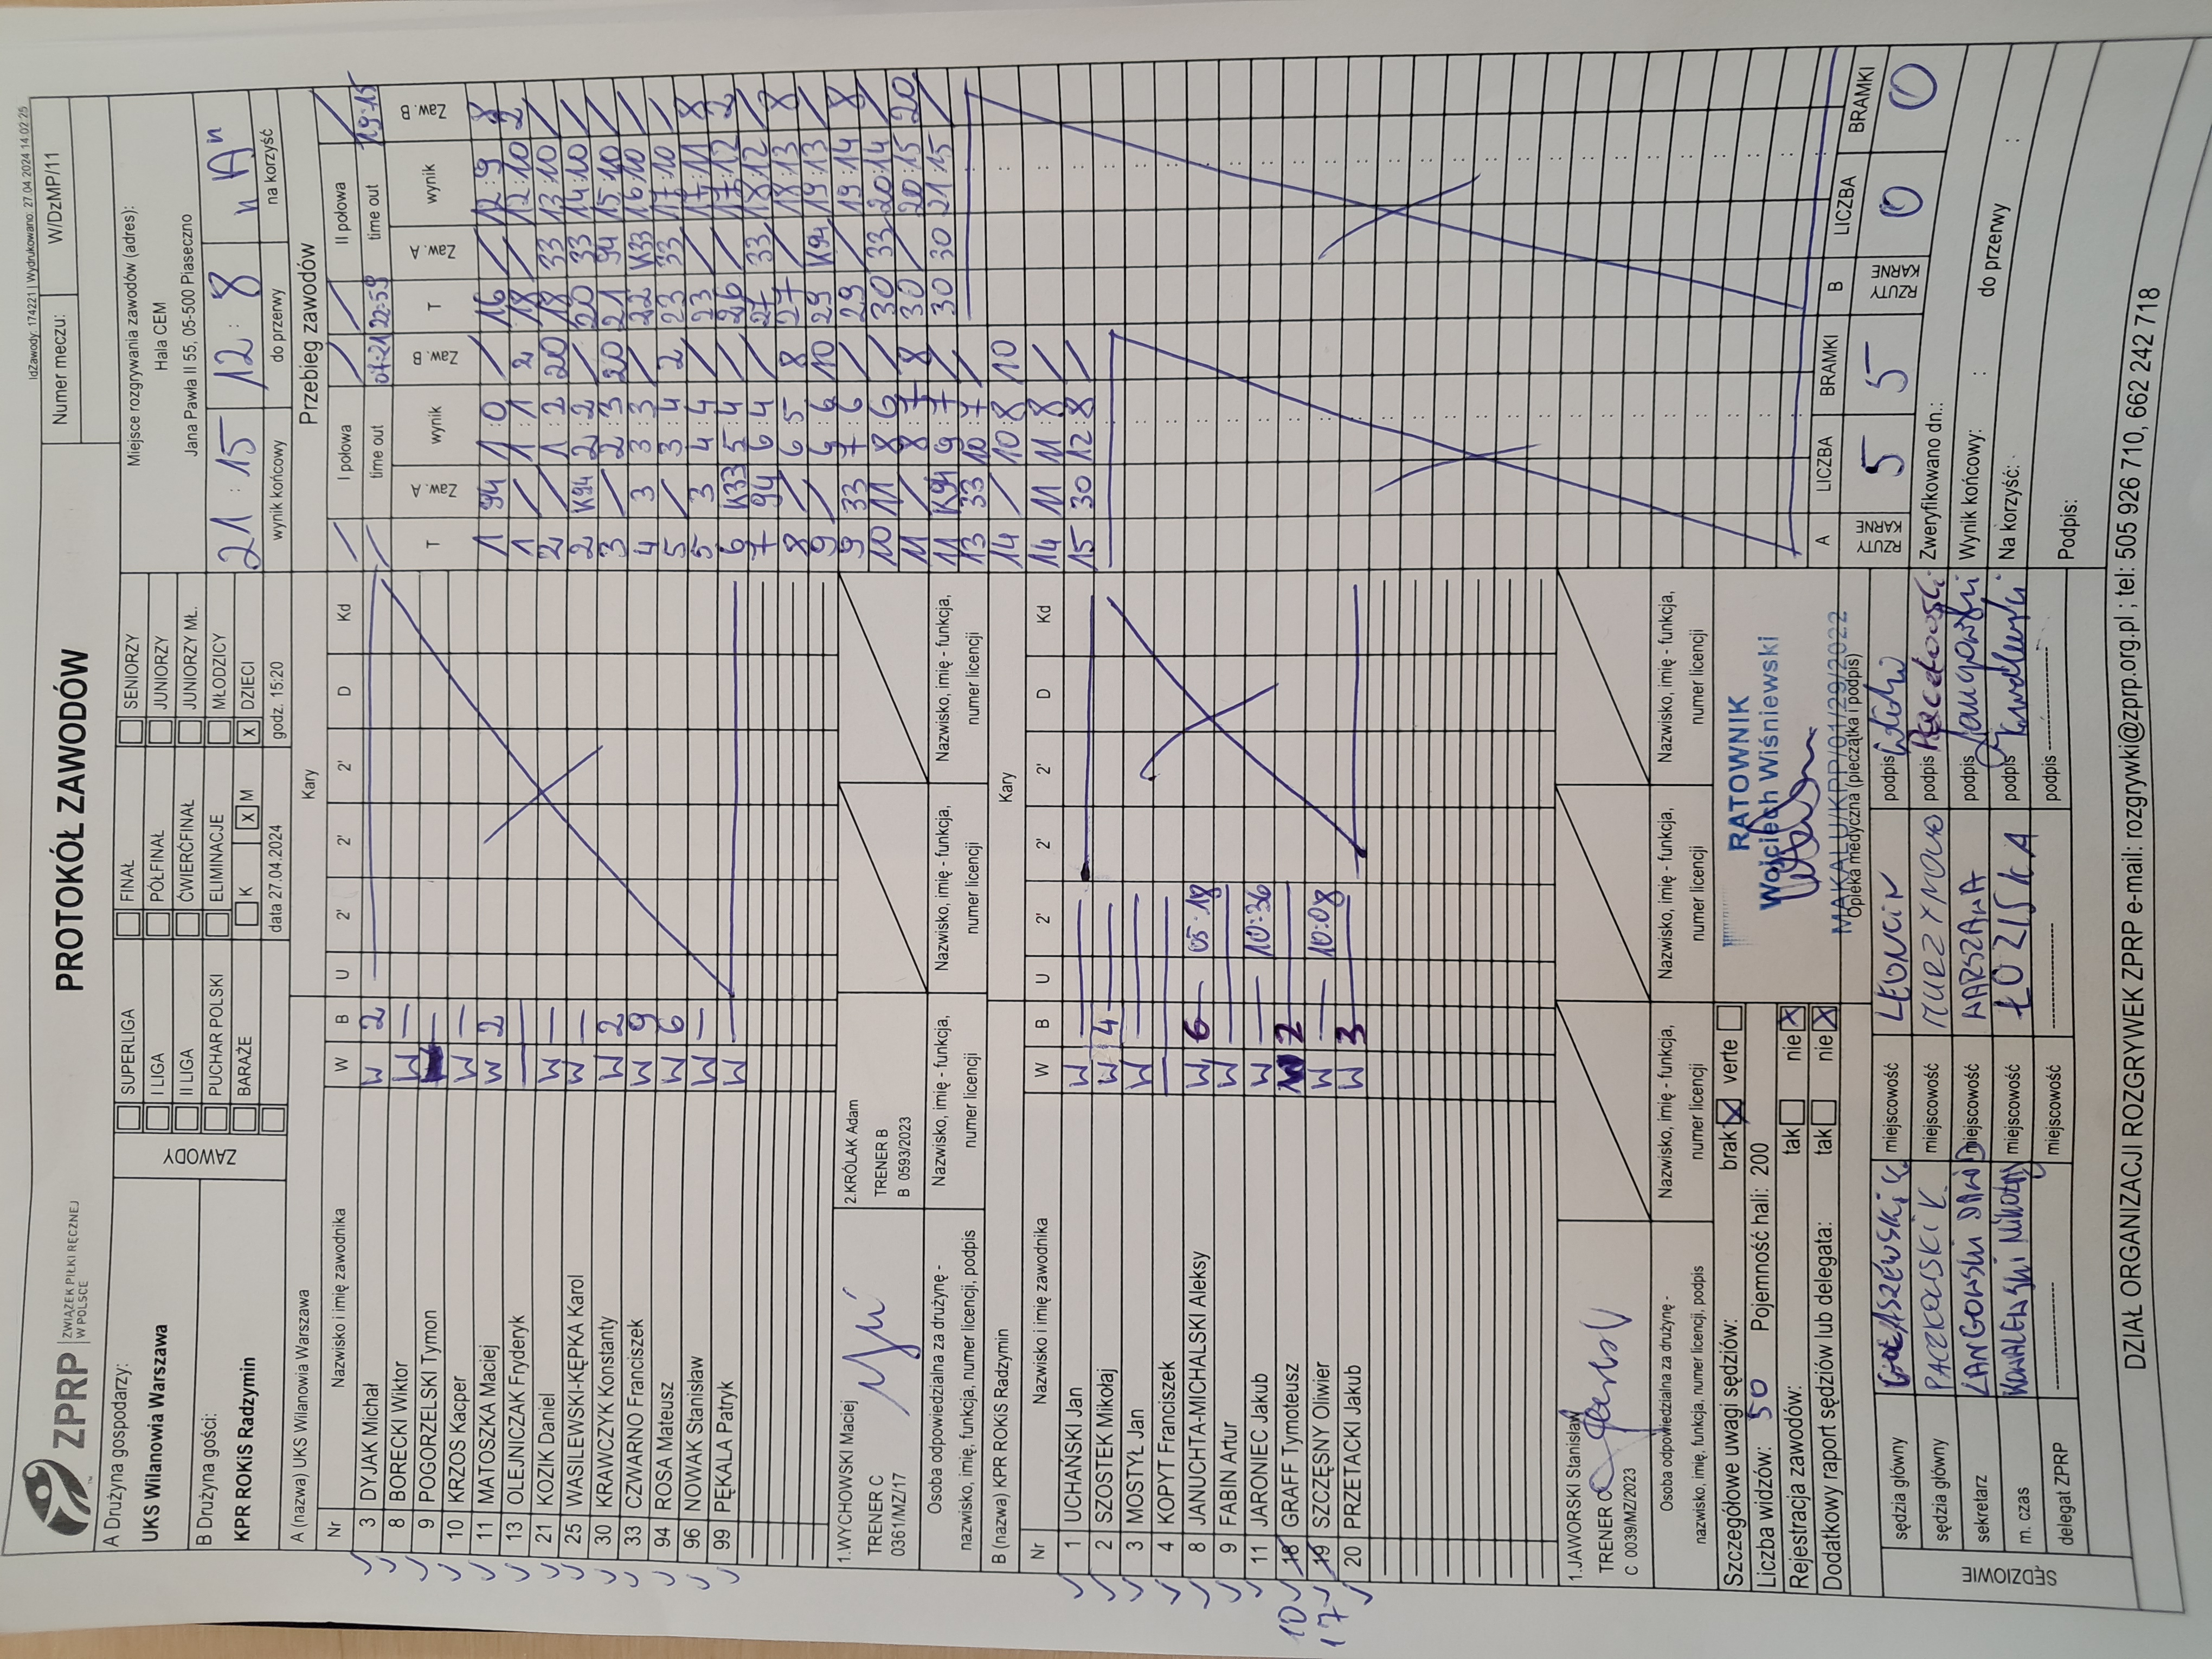 IdZawody: 174221 | Wydrukowano: 27.04.2024 14:02:25
ZPRP ZWIĄZEK PIŁKI RĘCZNEJ W POLSCE
PROTOKÓŁ ZAWODÓW
Numer meczu: W/DzMP/11
A Drużyna gospodarzy:
UKS Wilanowia Warszawa
B Drużyna gości:
KPR ROKiS Radzymin
ZAWODY
SUPERLIGA FINAŁ SENIORZY
I LIGA PÓŁFINAŁ JUNIORZY
II LIGA ĆWIERĆFINAŁ JUNIORZY MŁ.
PUCHAR POLSKI ELIMINACJE MŁODZICY
BARAŻE K X M X DZIECI
data 27.04.2024 godz. 15:20
Miejsce rozgrywania zawodów (adres):
Hala CEM
Jana Pawła II 55, 05-500 Piaseczno
21 : 15 12 : 8 "A"
wynik końcowy do przerwy na korzyść
A (nazwa) UKS Wilanowia Warszawa Kary
Nr Nazwisko i imię zawodnika W B U 2' 2' 2' D Kd
3 DYJAK Michał W 2
8 BORECKI Wiktor W —
9 POGORZELSKI Tymon —
10 KRZOS Kacper W —
11 MATOSZKA Maciej W 2
13 OLEJNICZAK Fryderyk —
21 KOZIK Daniel W —
25 WASILEWSKI-KĘPKA Karol W —
30 KRAWCZYK Konstanty W 2
33 CZWARNO Franciszek W 9
94 ROSA Mateusz W 6
96 NOWAK Stanisław W —
99 PĘKALA Patryk W
1.WYCHOWSKI Maciej
TRENER C
0361/MZ/17
2.KRÓLAK Adam
TRENER B
B 0593/2023
Osoba odpowiedzialna za drużynę -
nazwisko, imię, funkcja, numer licencji, podpis
Nazwisko, imię - funkcja,
numer licencji
Nazwisko, imię - funkcja,
numer licencji
Nazwisko, imię - funkcja,
numer licencji
B (nazwa) KPR ROKiS Radzymin Kary
Nr Nazwisko i imię zawodnika W B U 2' 2' 2' D Kd
1 UCHAŃSKI Jan W —
2 SZOSTEK Mikołaj W 4
3 MOSTYŁ Jan W —
4 KOPYT Franciszek —
8 JANUCHTA-MICHALSKI Aleksy W 6 — 05:18
9 FABIN Artur W —
11 JARONIEC Jakub W — 10:36
10 18 GRAFF Tymoteusz W 2
17 19 SZCZĘSNY Oliwier W — 10:08
20 PRZETACKI Jakub W 3
1.JAWORSKI Stanisław
TRENER C
C 0039/MZ/2023
Osoba odpowiedzialna za drużynę -
nazwisko, imię, funkcja, numer licencji, podpis
Nazwisko, imię - funkcja,
numer licencji
Nazwisko, imię - funkcja,
numer licencji
Nazwisko, imię - funkcja,
numer licencji
Szczegółowe uwagi sędziów: brak X verte
Liczba widzów: 50 Pojemność hali: 200
Rejestracja zawodów: tak nie X
Dodatkowy raport sędziów lub delegata: tak nie X
RATOWNIK
Wojciech Wiśniewski
MAKALU/KPP/01/29/2022
Opieka medyczna (pieczątka i podpis)
SĘDZIOWIE
sędzia główny miejscowość LEONCIN podpis
sędzia główny PACZKOWSKI K. miejscowość podpis
sekretarz LANGOWSKI DAWID miejscowość WARSZAWA podpis
m. czas KOWALEWSKI Nikodem miejscowość podpis Kowalewski
delegat ZPRP miejscowość podpis
Przebieg zawodów
I połowa / / II połowa / /
time out / 07:21 time out 22:59 19:15
T Zaw. A wynik Zaw. B T Zaw. A wynik Zaw. B
1 94 1:0 / 16 / 12:9 8
1 / 1:1 2 18 / 12:10 2
2 / 1:2 20 18 33 13:10 /
2 K94 2:2 / 20 33 14:10 /
3 / 2:3 20 21 94 15:10 /
4 3 3:3 / 22 K33 16:10 /
5 / 3:4 2 23 33 17:10 /
5 3 4:4 / 23 / 17:11 8
6 K33 5:4 / 26 / 17:12 2
7 94 6:4 / 27 33 18:12 /
8 / 6:5 8 27 / 18:13 8
9 / 6:6 10 29 K94 19:13 /
9 33 7:6 / 29 / 19:14 8
10 11 8:6 / 30 33 20:14 /
11 / 8:7 8 30 / 20:15 20
11 K94 9:7 / 30 30 21:15 /
13 33 10:7 /
14 / 10:8 10
14 11 11:8 /
15 30 12:8 /
A RZUTY KARNE LICZBA 5 BRAMKI 5 B RZUTY KARNE LICZBA 0 BRAMKI 0
Zweryfikowano dn.:
Wynik końcowy: : do przerwy :
Na korzyść:
Podpis:
DZIAŁ ORGANIZACJI ROZGRYWEK ZPRP e-mail: rozgrywki@zprp.org.pl ; tel: 505 926 710, 662 242 718